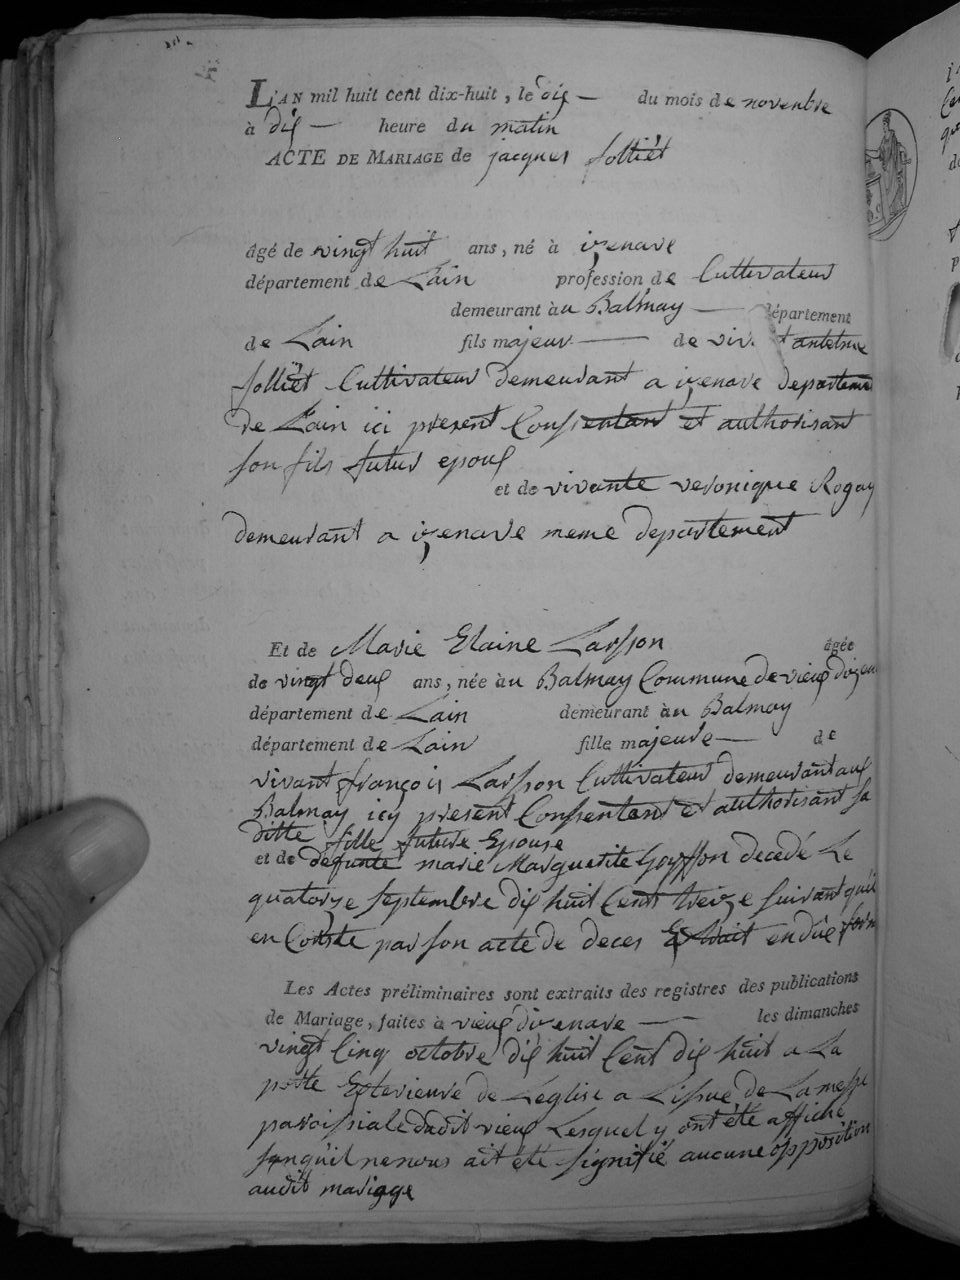 L'AN mil huit cent dix-huit, le dix — du mois de novenbre
à dix — heure du matin
ACTE DE MARIAGE de jacques folliét
âgé de vingt huit ans, né à izenave
département de Lain profession de Cultivateur
demeurant àu Balmay — département
de Lain fils majeur — de viv. t antelme
folliét Cultivateur demeurant a izenave departement
de Lain ici present Consentant et authorisant
son fils futur epoux
et de vivante veronique Rogay
demeurant a izenave meme departement
Et de Marie Elaine Larsson âgée
de vingt deux ans, née àu Balmay Commune de vieux dizenave
département de Lain demeurant àu Balmay
département de Lain fille majeure — de
vivant françois Larsson Cultivateur demeurant aux
Balmay icy present Consentent et authorisant sa
ditte fille future Epouse
et de défunte marie Marguerite decedé Le
quatorze septembre dix huit Cent treize suivant quil
en Conste par son acte de deces Extrait endûe form
Les Actes préliminaires sont extraits des registres des publications
de Mariage, faites à vieux dizenave — les dimanches
vingt Cinq octobre dix huit Cent dix huit a La
porte Exterieure de Leglise a Lissue de La messe
paroissiale dudit vieux Lesquel y ont été affiché
sanquil ne nous ait été signifié aucune opposition
audit mariage